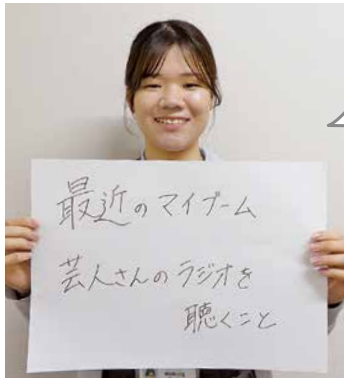 最近のマイブーム
芸人さんのラジオを
聴くこと